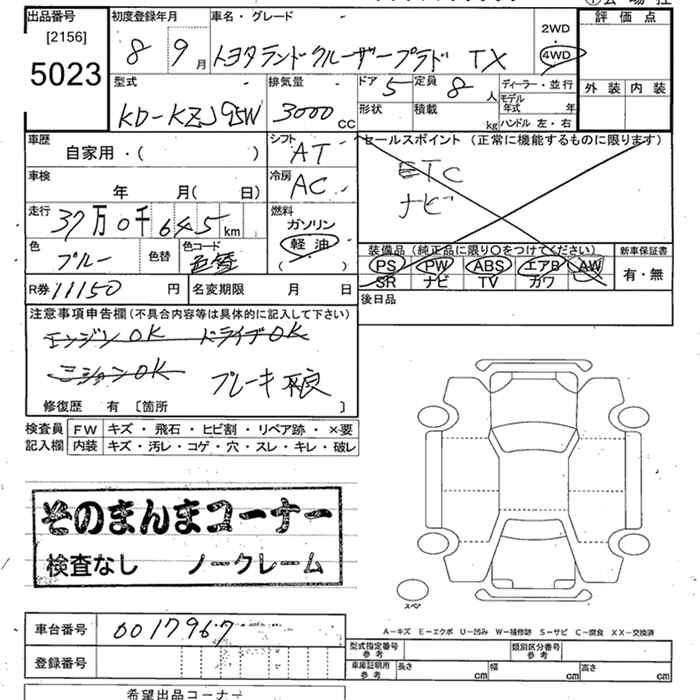 出品番号
[2156]
5023
初度登録年月
8 9 月
車名・グレード
トヨタランドクルーザープラド TX
2WD
・
4WD
評価点
外装 内装
型式
KD-KZJ95W
排気量
3000 cc
ドア 5
定員 8 人
形状
積載 kg
ディーラー・並行
モデル年式 年
ハンドル 左・右
車歴
自家用・( )
シフト AT
セールスポイント (正常に機能するものに限ります)
ETC
ナビ
車検
年 月( 日)
冷房 AC
走行
37万0千645km
燃料
ガソリン
軽油
( )
色
ブルー
色替
色コード
色替
装備品(純正品に限り〇をつけてください)
PS PW ABS エアB AW
SR ナビ TV カワ
新車保証書
有・無
R券 11150 円
名変期限 月 日
後日品
注意事項申告欄(不具合内容等は具体的に記入して下さい)
エンジンOK ドライブOK
ミションOK ブレーキ不良
修復歴 有 〔箇所 〕
検査員記入欄
FW キズ・飛石・ヒビ割・リペア跡・×要
内装 キズ・汚レ・コゲ・穴・スレ・キレ・破レ
そのまんまコーナー
検査なし ノークレーム
スペア
A-キズ E-エクボ U-凹み W-補修跡 S-サビ C-腐食 XX-交換済
車台番号 0017967
登録番号
型式指定番号 参考
類別区分番号 参考
車庫証明用 参考
長さ cm 幅 cm 高さ cm
希望出品コーナー